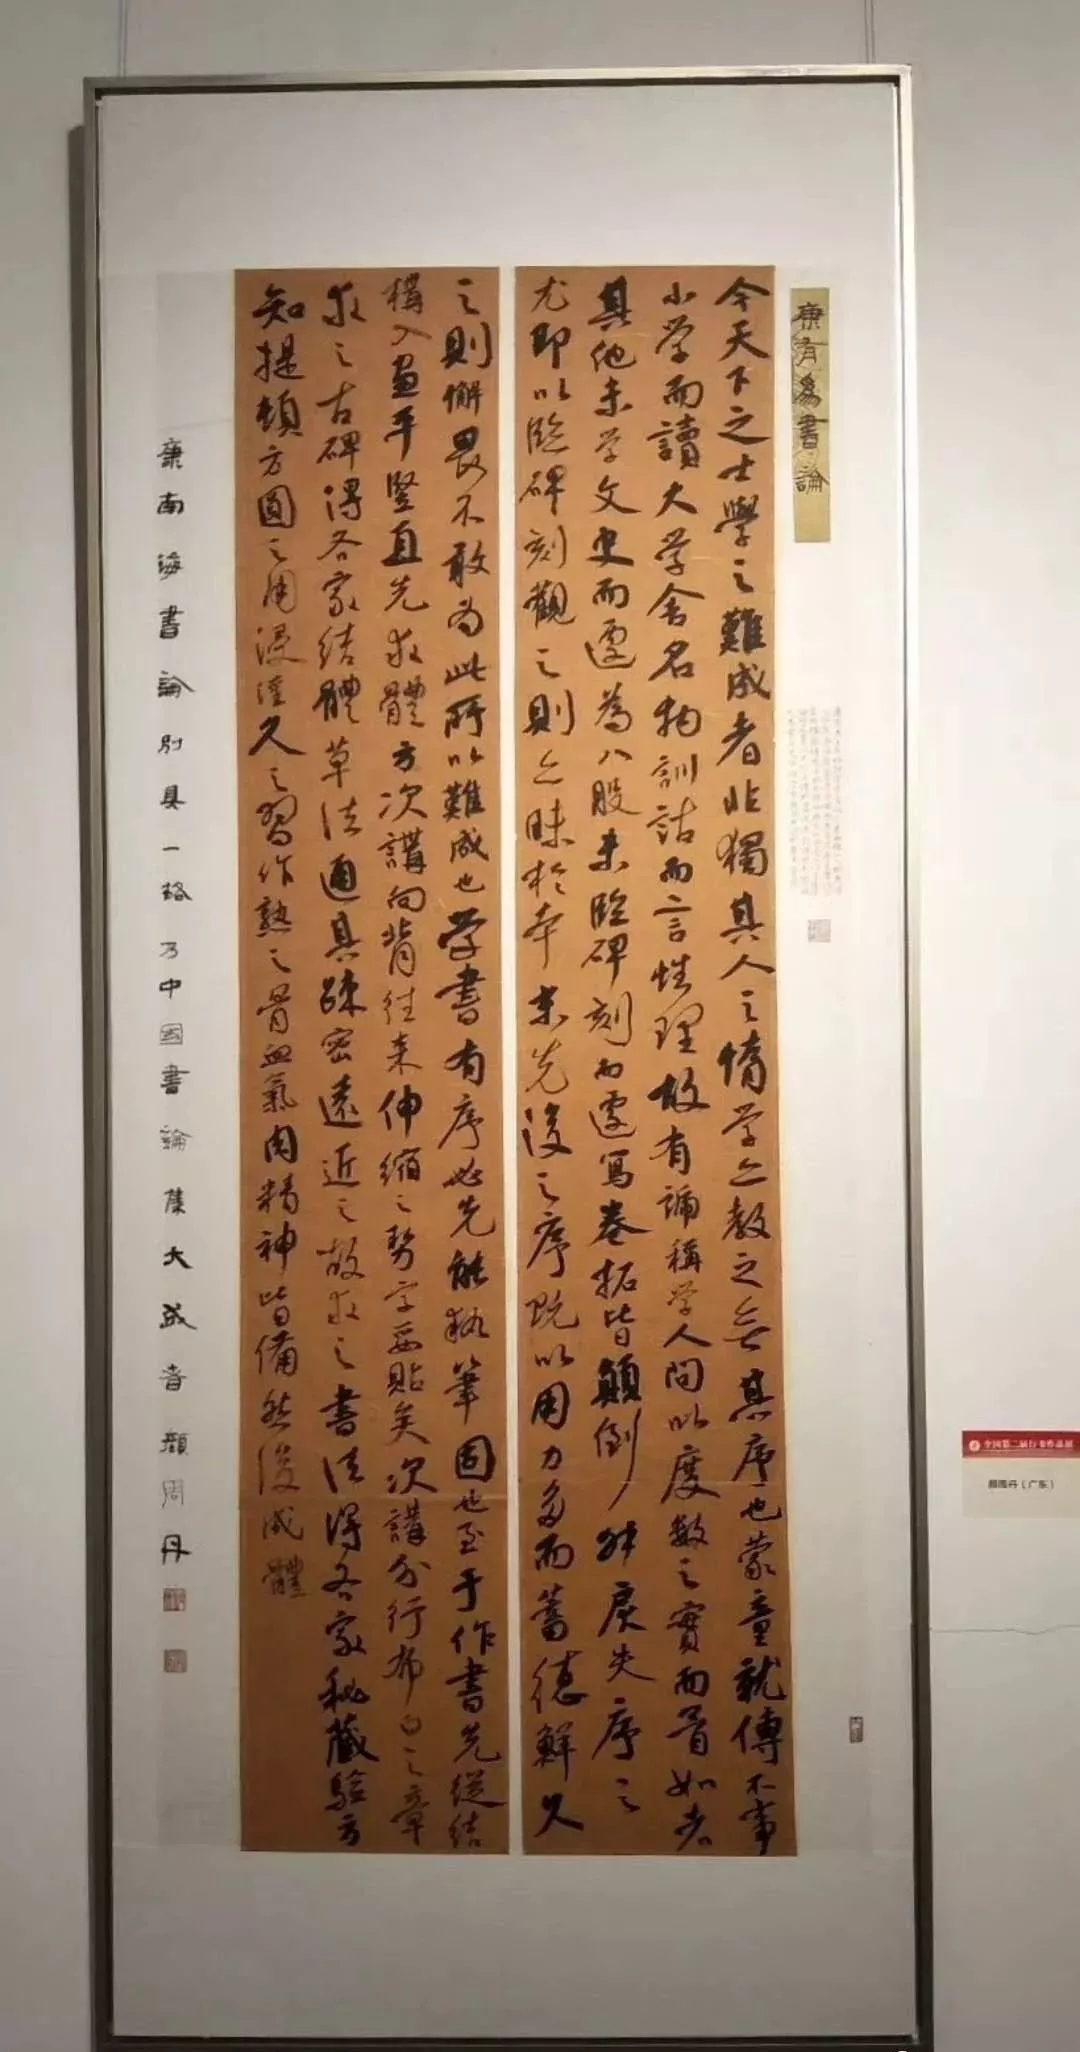 康有為書論
今天下之士學之難成者非獨其人之惰学亦教之無其序也蒙童就傅不事
小学而讀大学舍名物訓詁而言性理故有誦稱学人問以度数之實而瞢如者
其他未学文史而遽為八股未臨碑刻而遽寫卷拓皆顛倒舛戾失序之
尤即以臨碑刻觀之則亦昧於本末先後之序既以用力多而蓄德鮮久
之則懈畏不敢為此所以難成也学書有序必先能執筆固也至于作書先從結
構入畫平豎直先求體方次講向背往来伸縮之势字妥貼矣次講分行布白之章
求之古碑得各家結體草法通其疎密遠近之故求之書法得各家秘藏驗方
知提頓方圓之用浸淫久之習作熟之骨血氣肉精神皆備然後成體
康南海書論別具一格乃中国書論集大成者顏周丹
全国第二届行书作品展
颜周丹（广东）